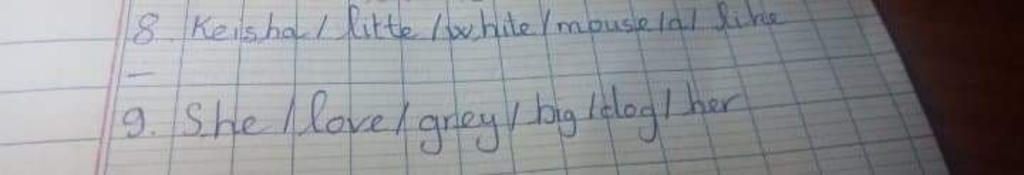 8. Keisha / litte / white / mouse / a / like
9. She / love / grey / big / dog / her